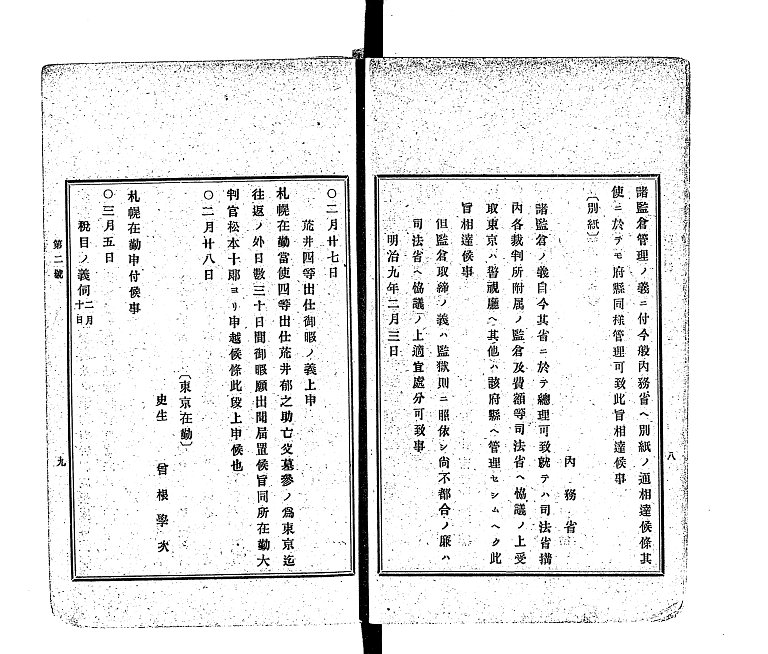 諸監倉管理ノ義ニ付今般內務省ヘ別紙ノ通相達候條其
使ニ於テモ府縣同樣管理可致此旨相達候事
〔別紙〕
內務省
諸監倉ノ義自今其省ニ於テ總理可致就テハ司法省構
內各裁判所附属ノ監倉及費額等司法省ヘ協議ノ上受
取東京ハ警視廳ヘ其他ハ該府縣ヘ管理セシムヘク此
旨相達候事
但監倉取締ノ義ハ監獄則ニ照依シ尙不都合ノ廉ハ
司法省ヘ協議ノ上適宜處分可致事
明治九年二月三日
八
〇二月廿七日
荒井四等出仕御暇ノ義上申
札幌在勤當使四等出仕荒井郁之助亡父墓參ノ爲東京迄
往返ノ外日數三十日間御暇願出聞届置候旨同所在勤大
判官松本十郞ヨリ申越候條此段上申候也
〇二月廿八日
〔東京在勤〕
史生 曾根學次
札幌在勤申付候事
〇三月五日
税目ノ義伺二月十日
第二號
九